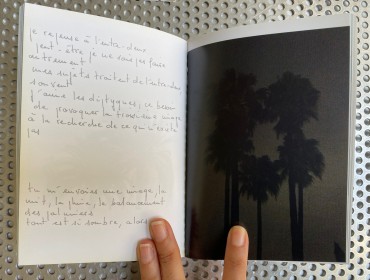 je repense à l'entre-deux
peut-être je ne sais pas faire
autrement
mes sujets traitent de l'entre-deux
souvent
j'aime les diptyques, ce besoin
de provoquer la troisième image
à la recherche de ce qui n'existe
pas
tu m'envoies une image, la
nuit, la pluie, le balancement
des palmiers
tout est si sombre, alors